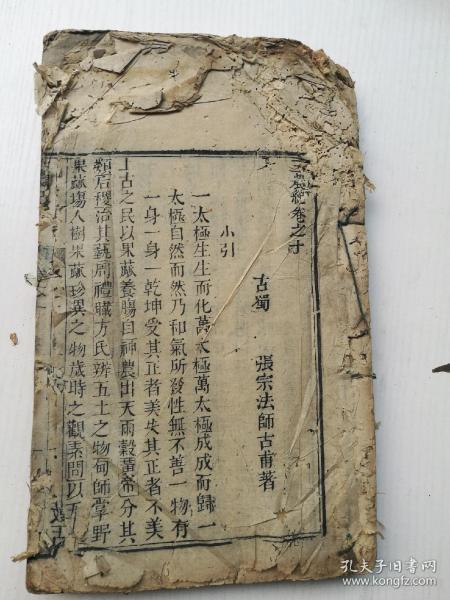 三農紀卷之十
古蜀 張宗法師古甫著
小引
一太極生生而化萬太極萬太極成成而歸一
太極自然而然乃和氣所發性無不善一物有
一身一身一乾坤受其正者美失其正者不美
上古之民以果蓏養腸自神農出天雨穀黃帝分其
類后稷治其藝周禮職方氏辨五土之物甸師掌野
果蓏場人樹果蓏珍異之物歲時之觀素問以五
孔夫子旧书网
www.kongfz.com